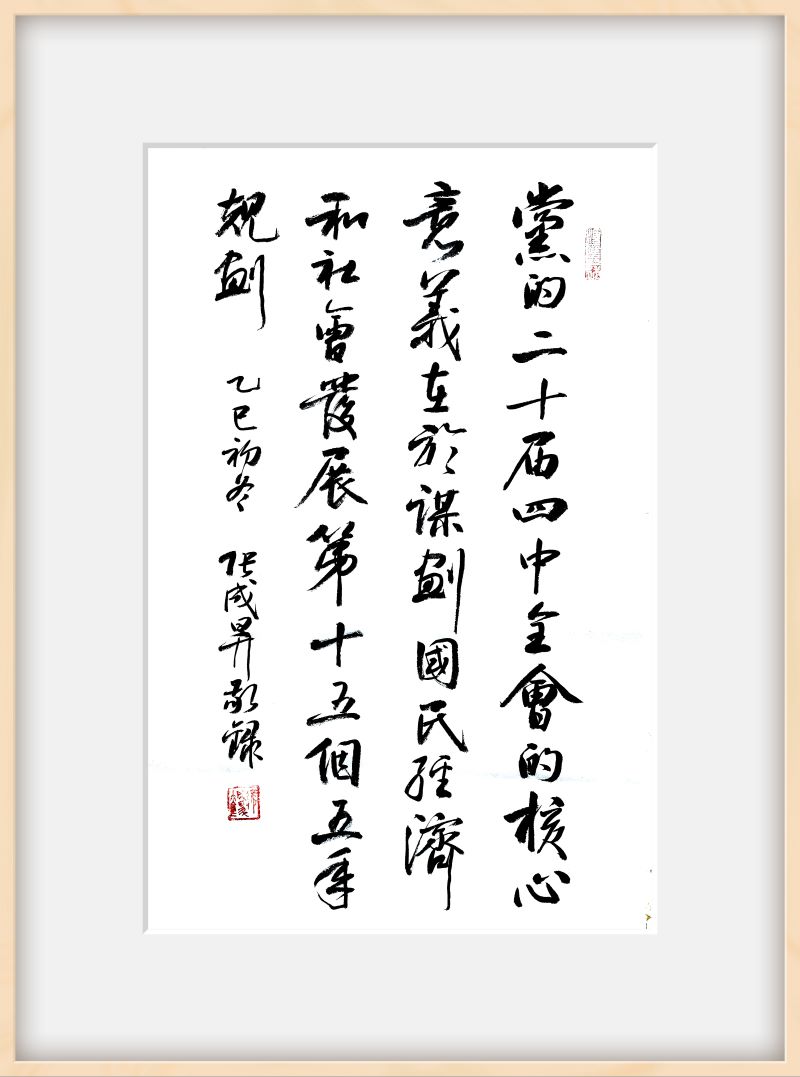 黨的二十届四中全會的核心
意義在於谋劃國民經濟
和社會發展第十五個五年
規劃
乙巳初冬 張成昇敬録